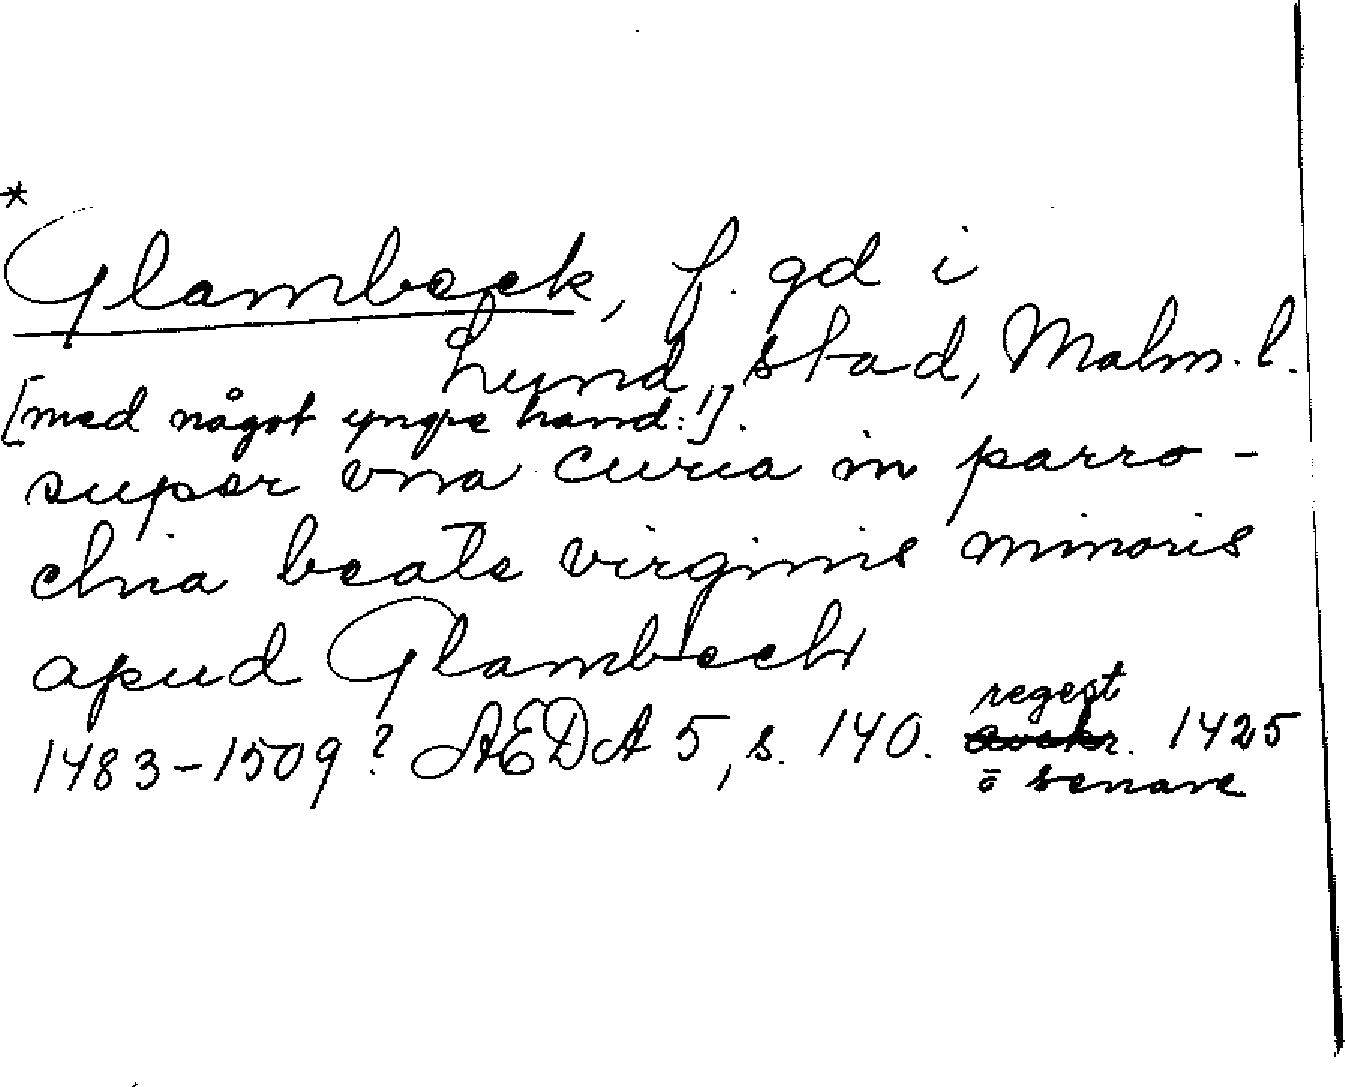 *
Glambeck, f. gd i
Lund, stad, Malm. l.
[med något yngre hand:!].
super vna curia in parro-
chia beate virginis minoris
apud Glambech
1483-1509? AEDA 5, s. 140. regest 1425
ō senare